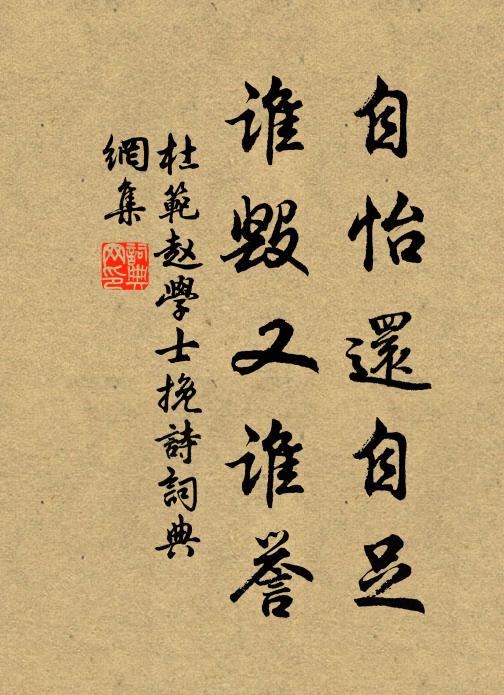 自怡還自足
誰毀又誰譽
杜範趙學士挽詩詞典
網集
詞典
网印